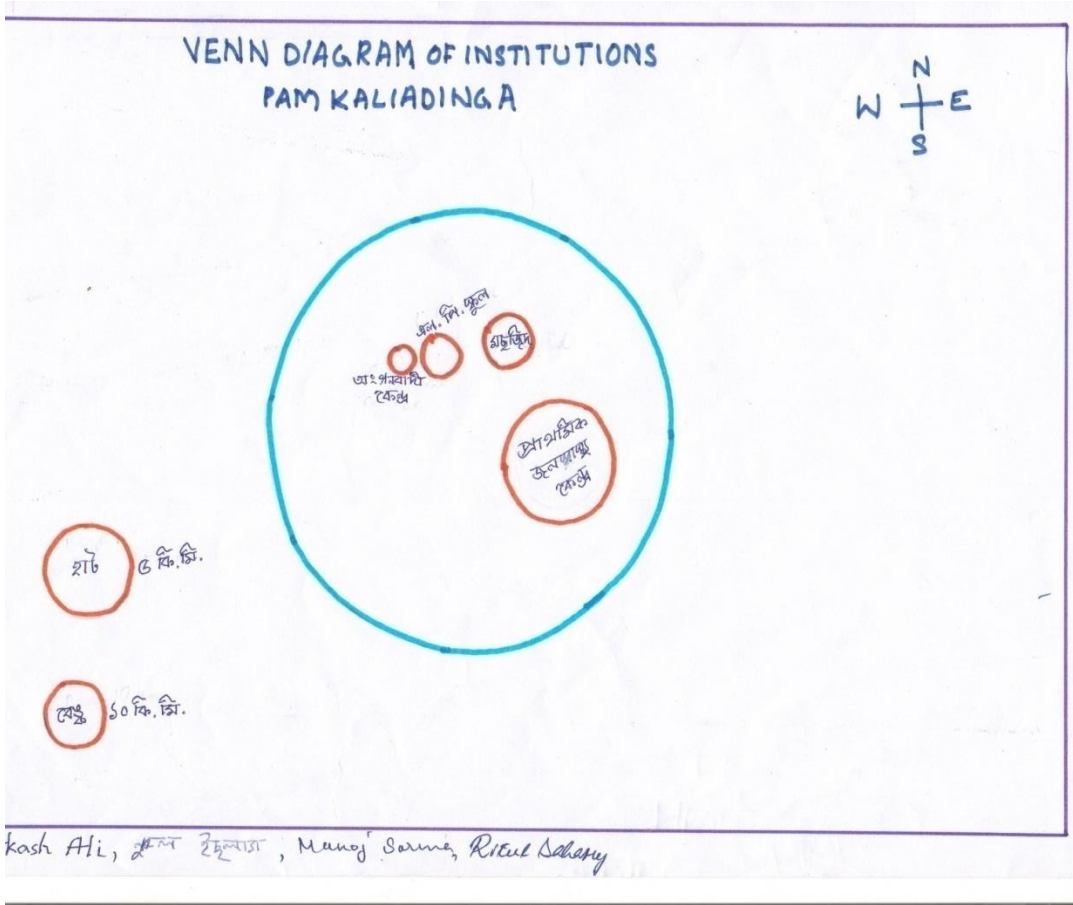 VENN DIAGRAM OF INSTITUTIONS
PAM KALIADINGA
N
W E
S
এল. পি. স্কুল
মছজিদ
অংগনবাদী
কেন্দ্ৰ
প্ৰাথমিক
জনস্বাস্থ্য
কেন্দ্ৰ
হাট
কি.মি.
বেংক ১০ কি.মি.
kash Ali, ইছলাম, Manoj Sarma,